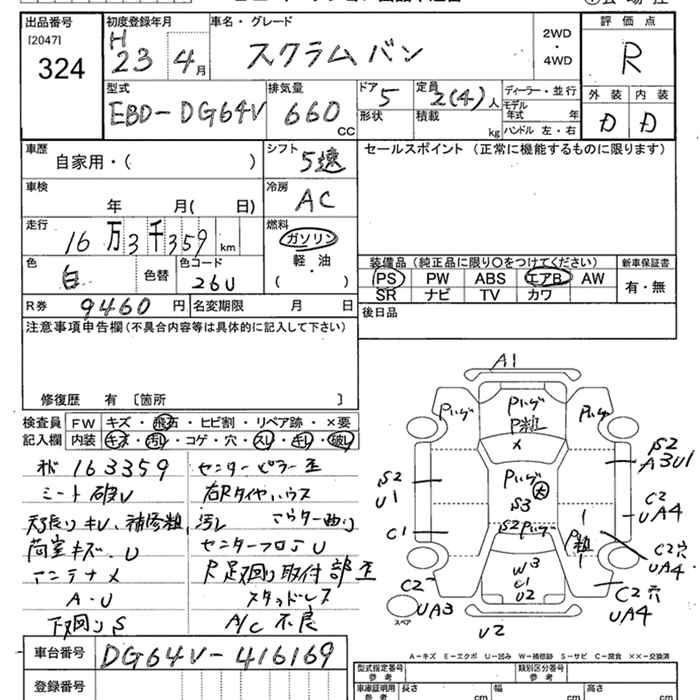 出品番号
[2047]
324
初度登録年月
H
23 4月
車名・グレード
スクラムバン
2WD
・
4WD
評価点
R
外装 内装
D D
型式
EBD-DG64V
排気量
660
CC
ドア
5
形状
定員
2(4)人
積載
kg
ディーラー・並行
モデル
年式 年
ハンドル 左・右
車歴
自家用・( )
シフト
5速
セールスポイント (正常に機能するものに限ります)
車検
年 月( 日)
冷房
AC
走行
16万3千359km
燃料
ガソリン
軽・油
( )
色
白
色替
色コード
26U
装備品 (純正品に限り○をつけてください)
新車保証書
PS PW ABS エアB AW
有・無
SR ナビ TV カワ
R券 9460円
名変期限 月 日
後日品
注意事項申告欄(不具合内容等は具体的に記入して下さい)
修復歴 有 〔箇所 〕
検査員
記入欄
FW キズ・飛石・ヒビ割・リペア跡・×要
内装 キズ・汚レ・コゲ・穴・スレ・キレ・破レ
163359
センターピラー歪
シート破レ
右Rタイヤハウス
天張りキレ、補修粗、汚レ
荷室キズ、U
センターフロアU
アンテナ×
取付部歪
A・U
スタッドレス
下廻りS
A/C不良
A1
Pいげ
P粗
Pいげ
Pいげ
×
Pいげ 大
S3
S2
U1
S2
A3U1
C2
UA4
C1
S2Pいげ
P粗
C2穴
UA4
W3
C1
U2
C2
UA3
C2穴
UA4
U2
スペア
車台番号 DG64V-416169
登録番号
A-キズ E-エクボ U-凹み W-補修跡 S-サビ C-腐食 ××-交換済
型式指定番号
参考
類別区分番号
参考
車庫証明用
参考
長さ cm
幅 cm
高さ cm